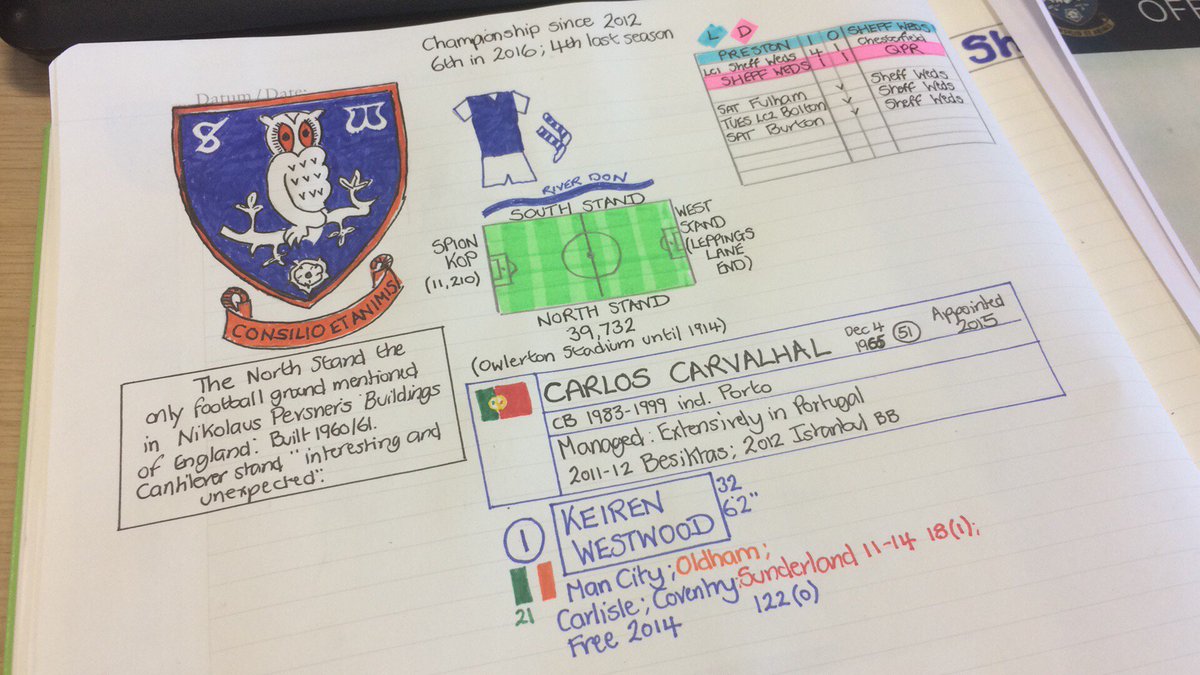 Championship since 2012
6th in 2016; 4th last season
Datum / Date:
S W
CONSILIO ET ANIMIS
RIVER DON
SOUTH STAND
SPION
KOP
(11,210)
WEST
STAND
(LEPPINGS
LANE
END)
NORTH STAND
39,732
(Owlerton Stadium until 1914)
L D
PRESTON 1 0 SHEFF WEDS
LC1 Sheff Weds 4 1 Chesterfield
SHEFF WEDS 1 1 QPR
SAT Fulham v Sheff Weds
TUES LC2 Bolton v Sheff Weds
SAT Burton v Sheff Weds
Sh
OFF
The North Stand the
only football ground mentioned
in Nikolaus Pevsner's Buildings
of England. Built 1960/61.
Cantilever stand "interesting and
unexpected".
CARLOS CARVALHAL Dec 4 1965 51 Appointed 2015
CB 1983-1999 ind. Porto
Managed: Extensively in Portugal
2011-12 Besiktas; 2012 Istanbul BB
1 KEIREN
WESTWOOD
32
6'2"
21
Man City; Oldham;
Carlisle; Coventry; Sunderland 11-14 18(1);
Free 2014 122(0)